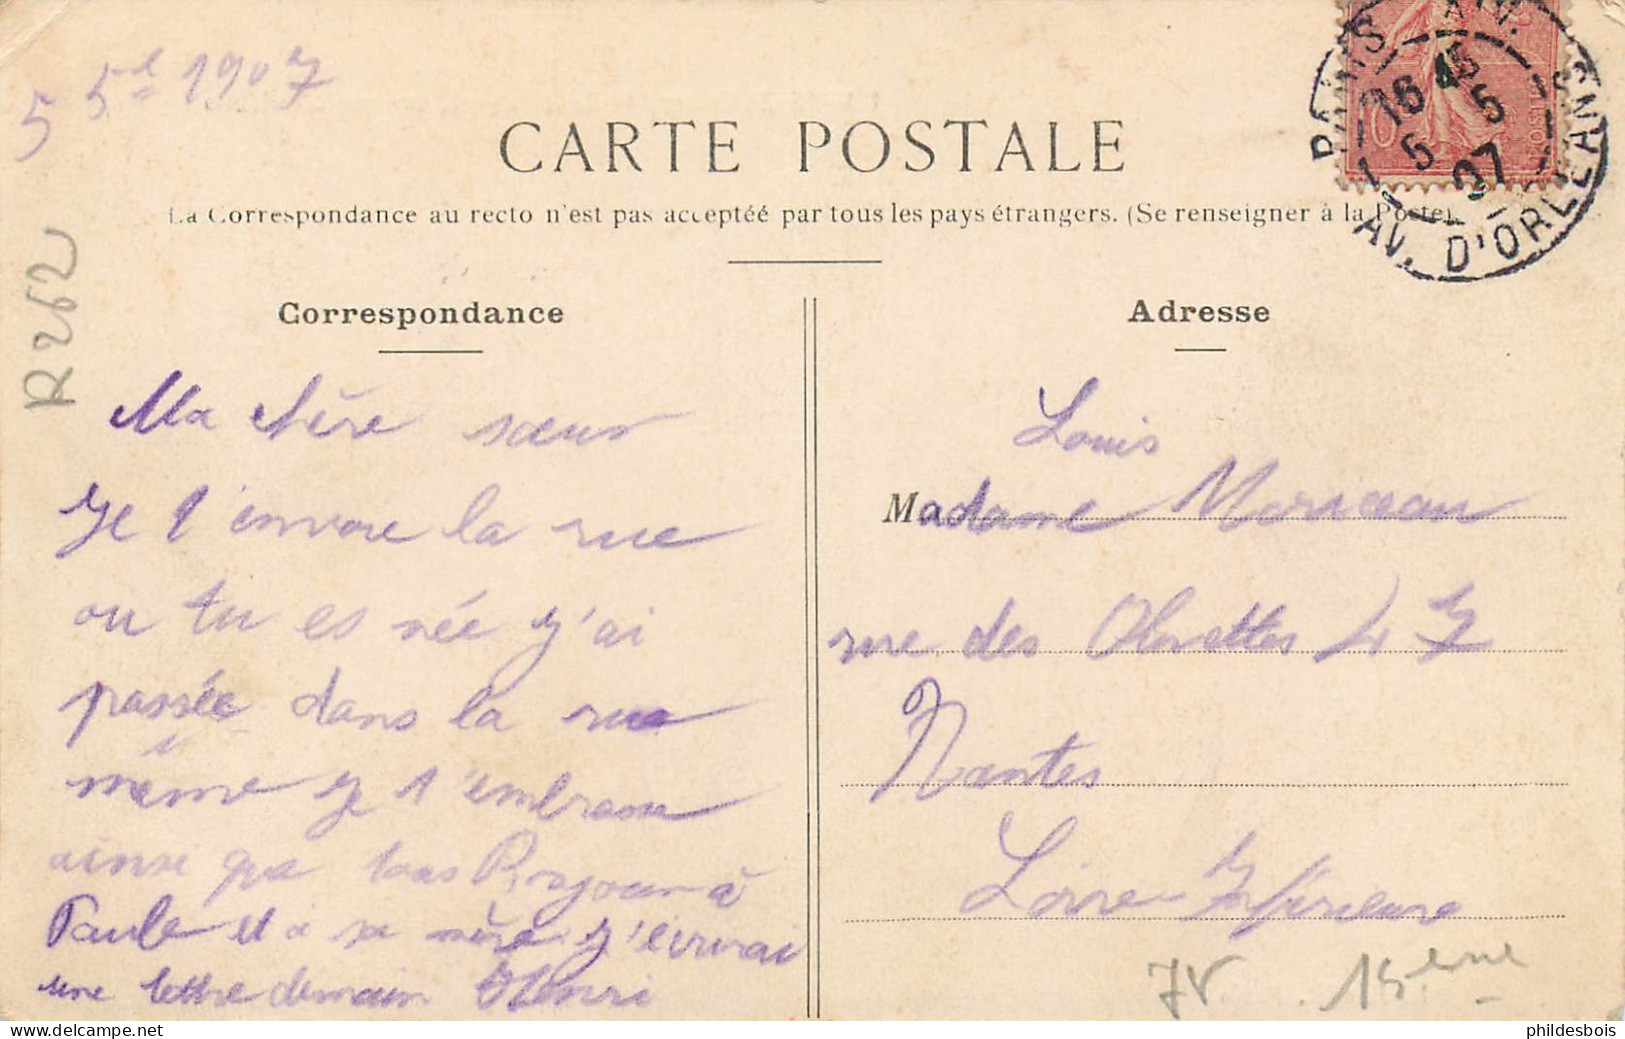 5 5el 1907
CARTE POSTALE
La Correspondance au recto n'est pas acceptéé par tous les pays étrangers. (Se renseigner à la Poste).
PARIS AV. D'ORLEANS
16 45
5 5
07
R 262
Correspondance
Ma chère sœur
Je t'envoie la rue
ou tu es née j'ai
passée dans la rue
même je t'embrasse
ainsi que tous Bonjour à
Paule et a sa mère j'écrirai
une lettre demain Henri
Adresse
Louis
Madame Moriceau
rue des Olivettes 47
Nantes
Loire-Inférieure
15eme
phildesbois